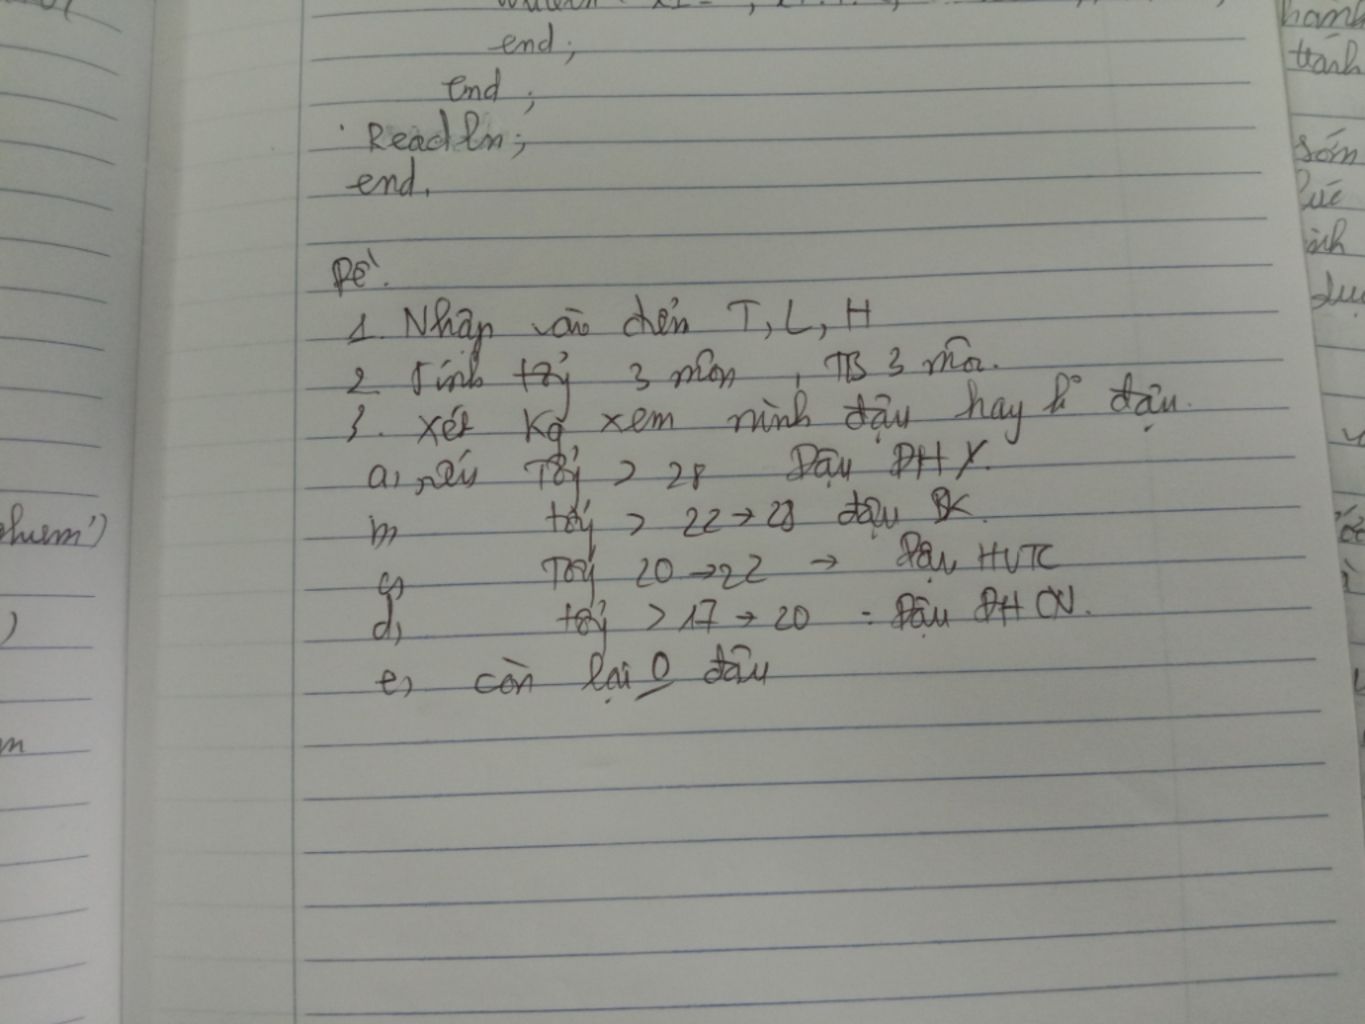 end;
end;
Readln;
end.
Đề:
1. Nhập vào điểm T, L, H
2. Tính tổg 3 môn, TB 3 môn.
3. xét kq xem mình đậu hay k° đậu.
a, nếu Tổg > 28 Đậu ĐH Y.
tổg > 22 → 28 đậu BK.
c, Tổg 20 → 22 → Đậu HVTC
d, tổg > 17 → 20 = Đậu ĐH CN.
e, còn lại 0 đậu
hành
tránh
sớm
lúc
ình